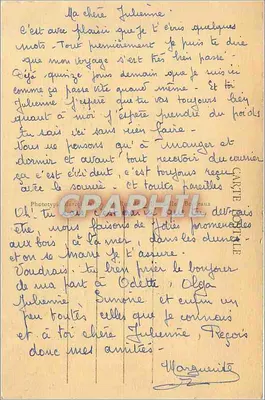 Ma chère Julienne.
C'est avec plaisir que je t'écris quelques
mots - Tout premièrement je puis te dire
que mon voyage s'est très bien passé.
Déjà quinze jours demain que je suis ici
comme ça passe vite quand même. Et toi
Julienne j'espère que tu vas toujours bien
quant à moi j'espère prendre du poids
tu sais ici sans rien faire.
Nous ne pensons qu'à manger et
dormir et avant tout recevoir du courrier
ça c'est évident, c'est toujours reçu
avec le sourire. Et toutes pareilles
CARTE POSTALE
CPAPHIL
Oh! tu
être, nous faisons de jolies promenades
aux bois, à la mer, dans les dunes
et on se marre je t'assure.
Voudrais-tu bien prier le bonjour
de ma part à Odette, Olga
Julienne, Simone et enfin un
peu toutes celles que je connais
et à toi chère Julienne, Reçois
donc mes amitiés.
Marguerite